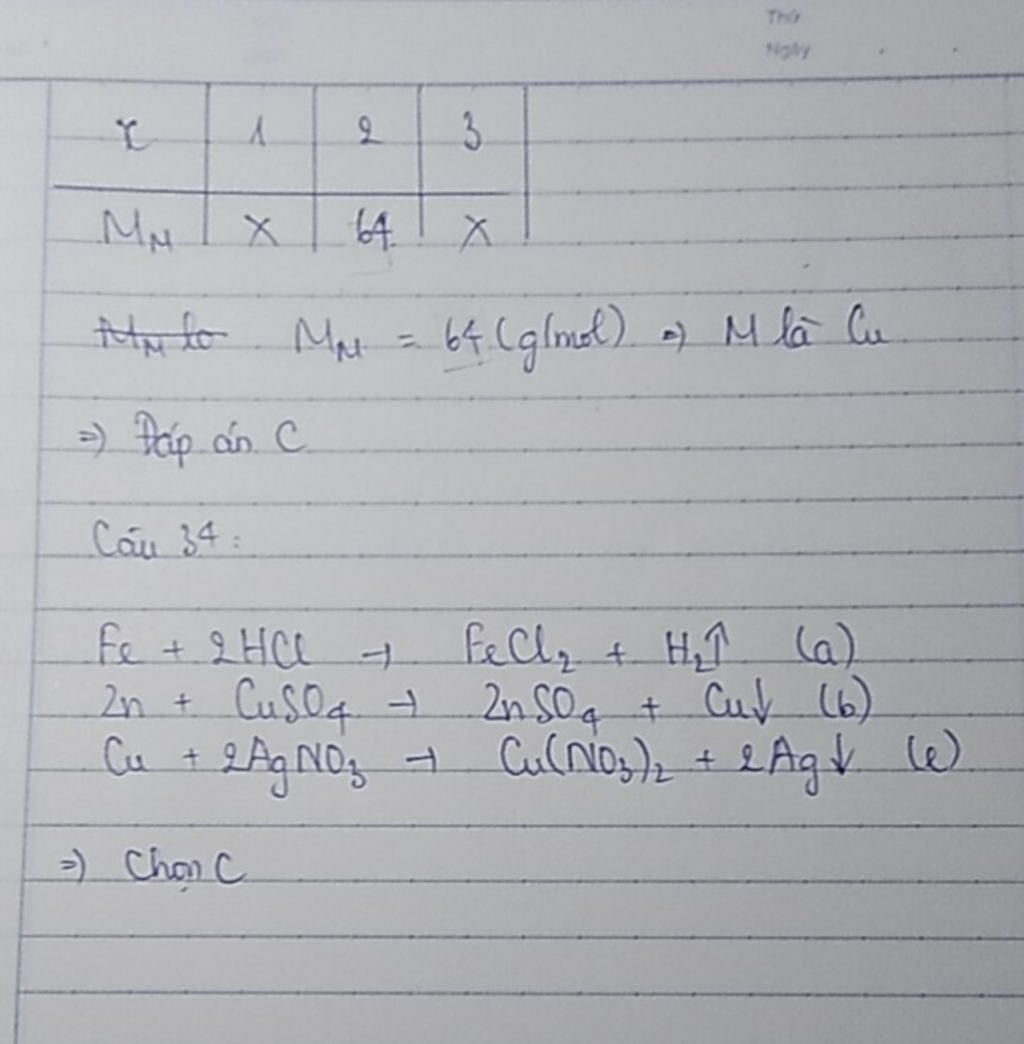 Thứ
Ngày
x 1 2 3
M_M X 64 X
M_M là M_M = 64 (g/mol) ⇒ M là Cu
⇒ Đáp án C
Câu 34:
Fe + 2HCl → FeCl₂ + H₂↑ (a)
Zn + CuSO₄ → ZnSO₄ + Cu↓ (b)
Cu + 2AgNO₃ → Cu(NO₃)₂ + 2Ag↓ (e)
⇒ Chọn C